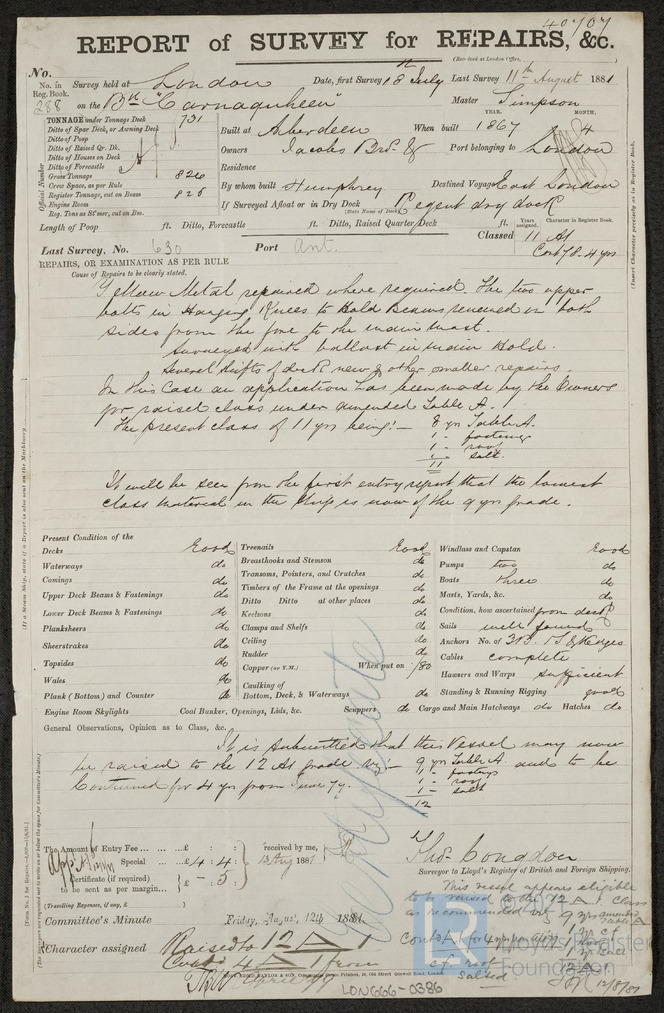 40707
REPORT of SURVEY for REPAIRS, &c.
(Received at London Office,
No.
No. in Reg. Book. Survey held at London Date, first Survey 18th July Last Survey 11th August 1881
288 on the Bk "Carnaquheen" Master Simpson
TONNAGE under Tonnage Deck 731
YEAR. MONTH.
Ditto of Spar Deck, or Awning Deck
Built at Aberdeen When built 1867 4
Ditto of Poop
Ditto of Raised Qr. Dk.
Owners Jacobs Bros. & Port belonging to London
Ditto of Houses on Deck
Ditto of Forecastle
Residence
Gross Tonnage 826
Crew Space, as per Rule
By whom built Humphrey Destined Voyage East London
Register Tonnage, cut on Beam 826
Engine Room
If Surveyed Afloat or in Dry Dock Regent dry dock
(State Name of Dock)
Reg. Tons as St'mer, cut on Bm.
Official Number
Length of Poop ft. Ditto, Forecastle ft. Ditto, Raised Quarter Deck ft. Years assigned. Character in Register Book.
Classed 11 A1
Last Survey, No. 630 Port Ant. Cont 78. 4 yrs
REPAIRS, OR EXAMINATION AS PER RULE
Cause of Repairs to be clearly stated.
Yellow Metal repaired where required. The two upper
bolts in Hanging Knees to Hold Beams renewed on both
sides from the fore to the main mast.
Surveyed with ballast in main Hold.
Several shifts of deck new & other smaller repairs.
In this Case an application has been made by the Owners
for raised class under amended Table A.
The present class of 11 yrs being:— 8 yrs Table A.
1 - fastening
1 - roof
1 - salt.
11
It will be seen from the first entry report that the lowest
class material in the ship is now of the 9 yrs grade.
Present Condition of the
Decks Good Treenails Good Windlass and Capstan Good
Waterways do Breasthooks and Stemson do Pumps two do
Comings do Transoms, Pointers, and Crutches do Boats three do
Upper Deck Beams & Fastenings do Timbers of the Frame at the openings do Masts, Yards, &c. do
Lower Deck Beams & Fastenings do Ditto Ditto at other places do Condition, how ascertained from deck
Plansheers do Keelsons do Sails well found
Sheerstrakes do Clamps and Shelfs do Anchors No. of 3 B. 1 S. & Kedges
Topsides do Ceiling do Cables complete
Wales do Rudder do Hawsers and Warps sufficient
Copper (or Y.M.) When put on /80
Plank (Bottom) and Counter do Caulking of Bottom, Deck, & Waterways do Standing & Running Rigging good
Engine Room Skylights Coal Bunker, Openings, Lids, &c. Scuppers do Cargo and Main Hatchways do Hatches do
General Observations, Opinion as to Class, &c.
It is submitted that this Vessel may now
be raised to the 12 A1 grade viz:— 9 yrs Table A. and to be
Continued for 4 yrs from June 79. 1 - fastgs
1 - roof
1 - salt
12
Certificate
The Amount of Entry Fee ... £ : : received by me,
Special ... £ 4 : 4 : 12 Aug 1881
Certificate (if required) to be sent as per margin £ - 5 :
(Travelling Expenses, if any, £ )
Thos. Congdon
Surveyor to Lloyd's Register of British and Foreign Shipping.
Committee's Minute Friday, August 12th 1881.
Character assigned Raised to 12 A 1
Cont 4 A 1 from
April 79
This vessel appears eligible
to be raised to the 12 A 1 Class
as recommended viz 9 yrs amended Table A
1 yr cf
1 roof
1 yr salt
12 A 1
salted.
12/8/81
LON666-0386
© 2021
Lloyd's Register
Foundation
(Insert Character precisely as in Register Book.